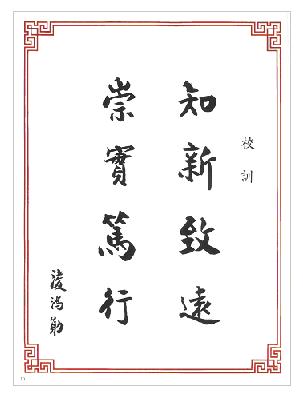 校訓
知新致遠
崇實篤行
淩鴻勛